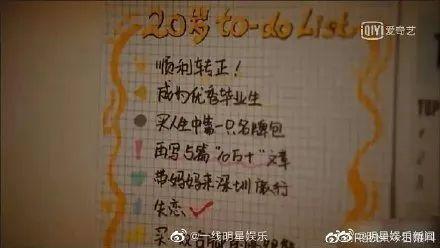 20岁 to-do List
爱奇艺
顺利转正!
成为优秀毕业生
买人生中第一只名牌包
再写5篇"10万+"文章
带妈妈来深圳旅行
失恋
买一
TOP
@一线明星娱乐
@明星娱乐新闻